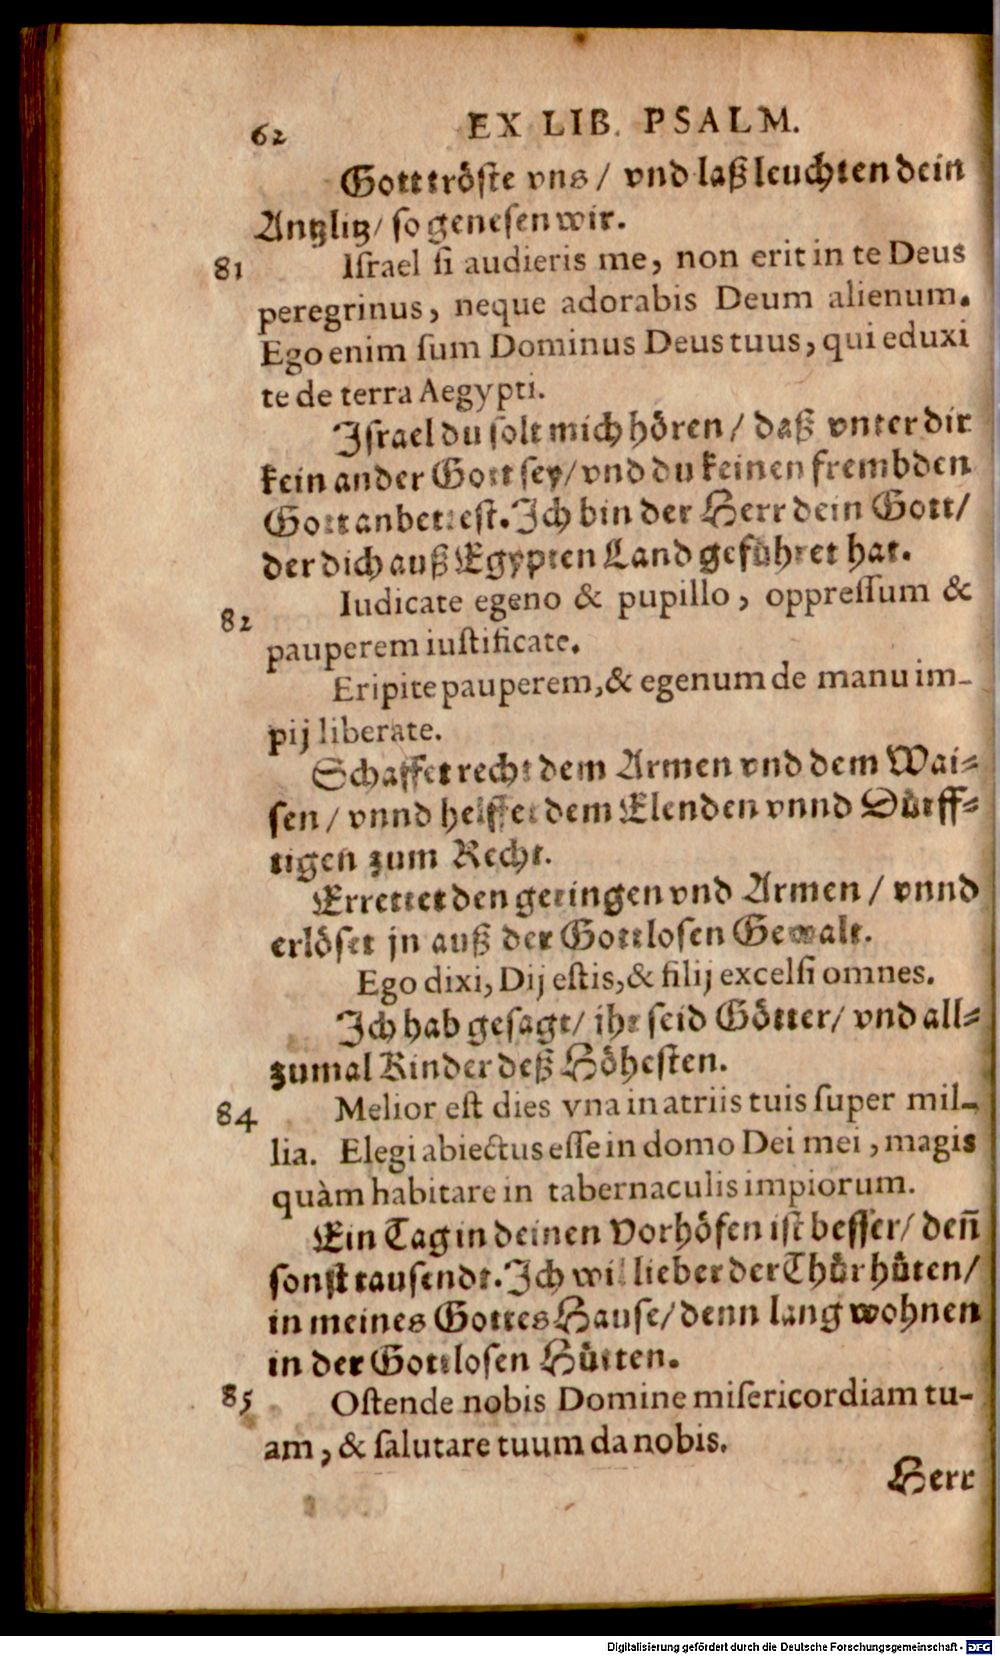 62 EX LIB. PSALM.
Gott tröste vns / vnd laß leuchten dein
Antzlitz / so genesen wir.
81 Iſrael ſi audieris me, non erit in te Deus
peregrinus, neque adorabis Deum alienum.
Ego enim ſum Dominus Deus tuus, qui eduxi
te de terra Aegypti.
Jſrael du ſolt mich hören / daß vnter dir
kein ander Gott ſey / vnd du keinen frembden
Gott anbettest. Jch bin der Herr dein Gott /
der dich auß Egypten Land geführet hat.
82 Iudicate egeno & pupillo, oppreſſum &
pauperem iuſtificate.
Eripite pauperem, & egenum de manu im-
pij liberate.
Schaffet recht dem Armen vnd dem Wai-
ſen / vnnd helffet dem Elenden vnnd Dürff-
tigen zum Recht.
Errettet den geringen vnd Armen / vnnd
erlöſet jn auß der Gottloſen Gewalt.
Ego dixi, Dij eſtis, & filij excelſi omnes.
Jch hab geſagt / ihr ſeid Götter / vnd all-
zumal Kinder deß Höheſten.
84 Melior eſt dies vna in atriis tuis ſuper mil-
lia. Elegi abiectus eſſe in domo Dei mei, magis
quàm habitare in tabernaculis impiorum.
Ein Tag in deinen Vorhöfen iſt beſſer / deñ
ſonſt tauſendt. Jch wil lieber der Thür hüten /
in meines Gottes Hauſe / denn lang wohnen
in der Gottloſen Hütten.
85 Oſtende nobis Domine miſericordiam tu-
am, & ſalutare tuum da nobis.
Herr
Digitalisierung gefördert durch die Deutsche Forschungsgemeinschaft - DFG